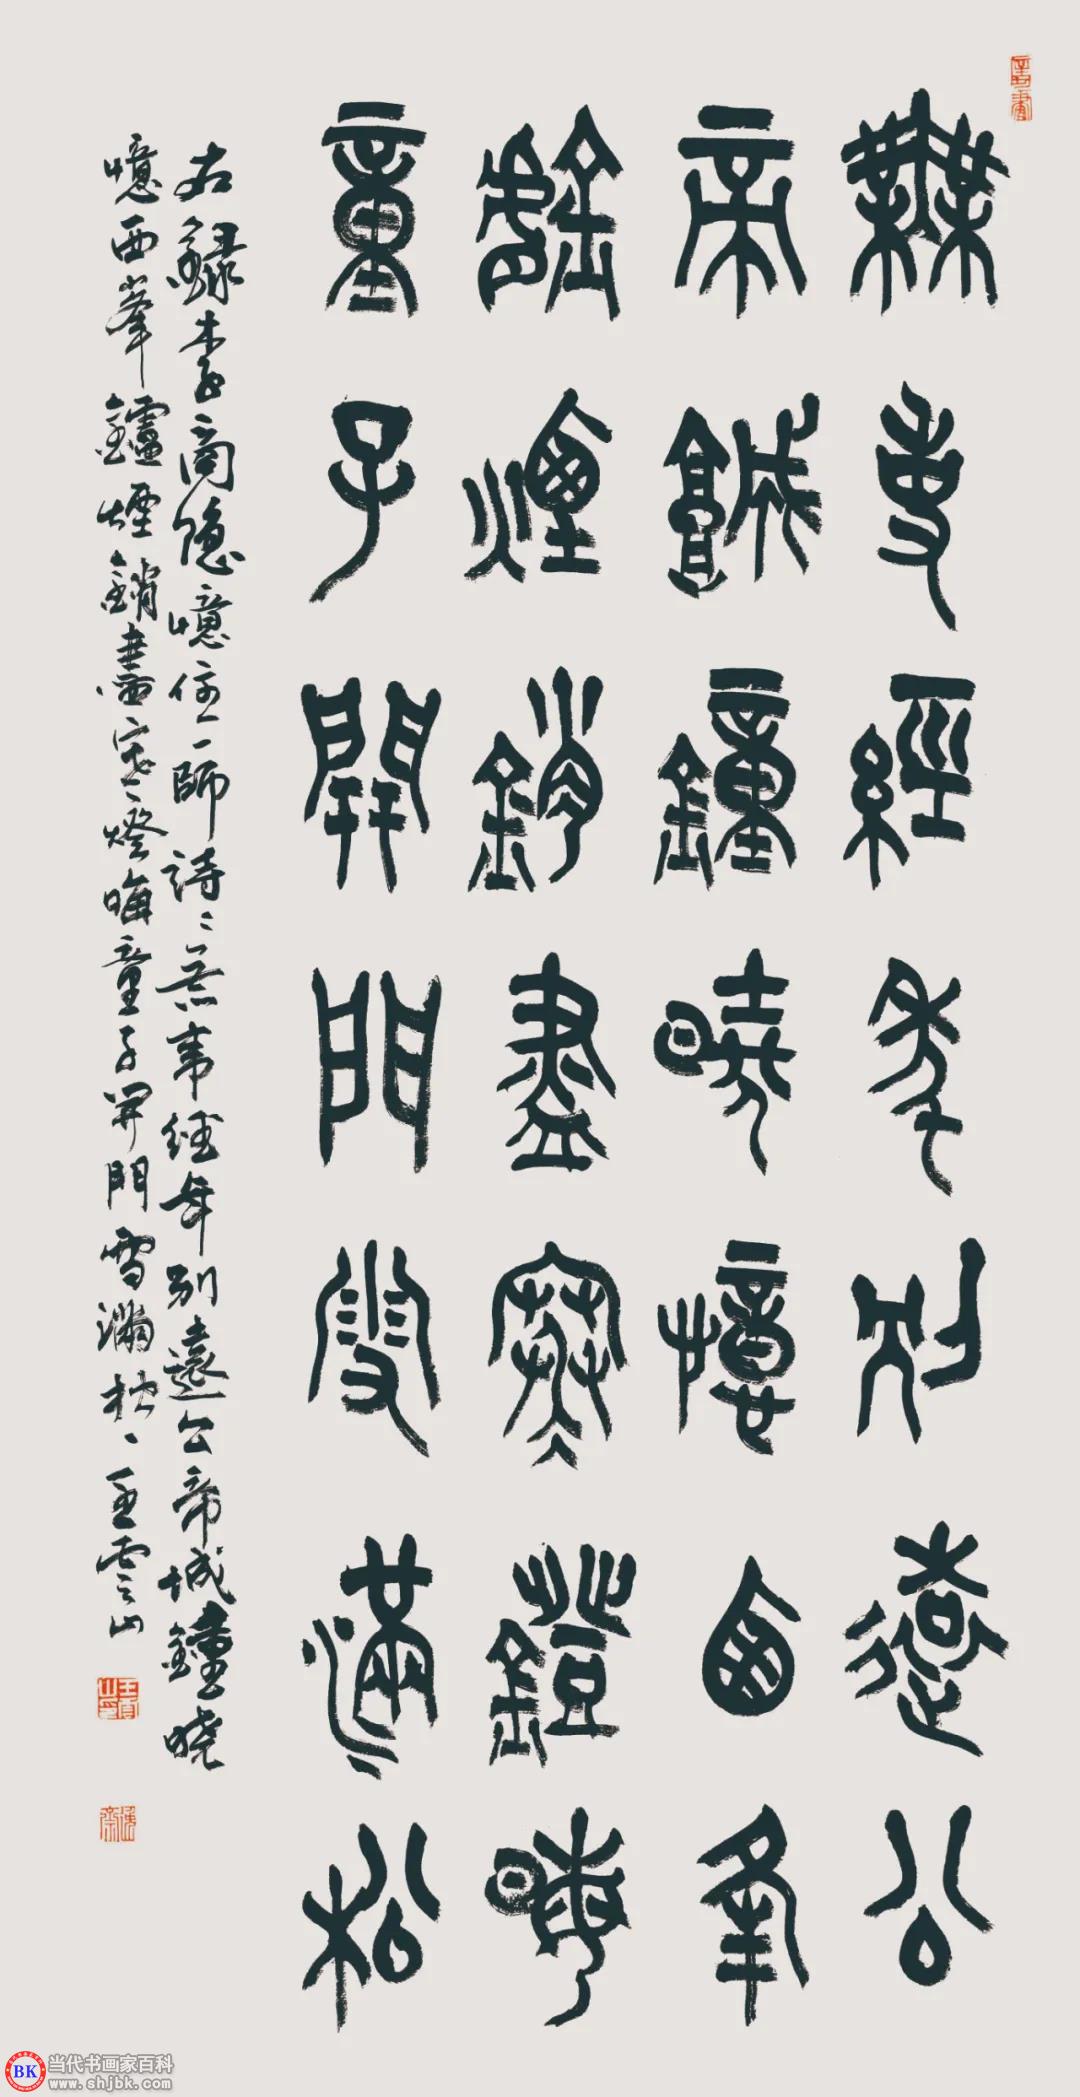 無事經年別遠公
帝城鐘曉憶西峯
鑪煙銷盡寒鐙晦
童子開門雪滿松
右錄李商隐憶住一師詩無事经年别遠公帝城鐘晓
憶西峯鑪煙銷盡寒燈晦童子開門雪滿松王雲山
BK 当代书画家百科
www.shjbk.com